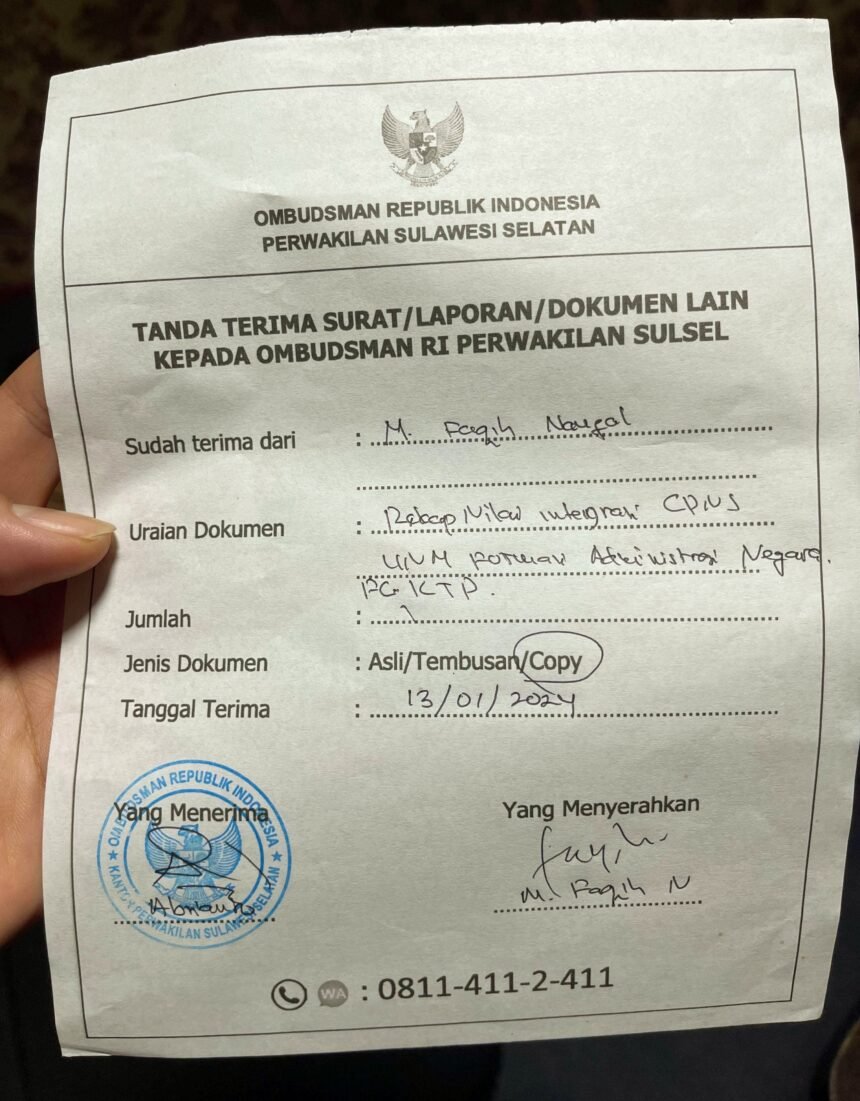 OMBUDSMAN REPUBLIK INDONESIA
PERWAKILAN SULAWESI SELATAN
TANDA TERIMA SURAT/LAPORAN/DOKUMEN LAIN
KEPADA OMBUDSMAN RI PERWAKILAN SULSEL
Sudah terima dari : M. Faqih Naufal
Uraian Dokumen : Rekap Nilai Integrasi CPNS
UNM Formasi Administrasi Negara.
KTP.
Jumlah : 1
Jenis Dokumen : Asli/Tembusan/Copy
Tanggal Terima : 13/01/2024
Yang Menerima
Yang Menyerahkan
OMBUDSMAN REPUBLIK INDONESIA
KANTOR PERWAKILAN SULAWESI SELATAN
M. Faqih N
WA : 0811-411-2-411